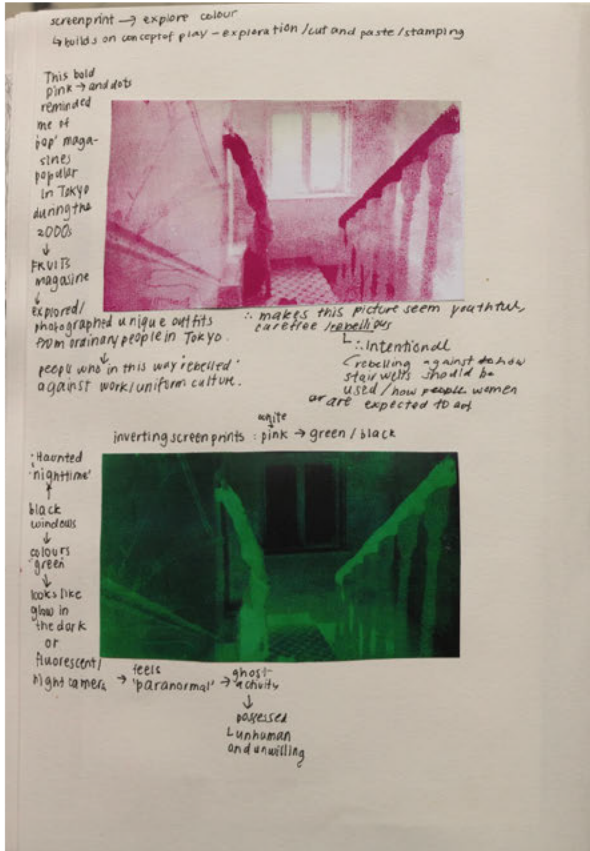 screenprint → explore colour
↳ builds on concept of play - exploration / cut and paste / stamping
This bold
pink → and dots
reminded
me of
'pop' maga-
sines
popular
in Tokyo
during the
2000s
↓
FRUITS
magasine
↓
explored/
photographed unique outfits
from ordinary people in Tokyo.
↓
people who in this way 'rebelled'
against work/uniform culture.
∴ makes this picture seem youthful,
carefree / rebellious
∴ Intentional
rebelling against to how
stairwells should be
used / how people women
or are expected to act
white
inverting screenprints : pink → green / black
: Haunted
'nighttime'
↑
black
windows
↓
colours
green
↓
looks like
glow in
the dark
or
fluorescent/
night camera → feels 'paranormal' → ghost-activity
↓
possessed
↳ unhuman
and unwilling